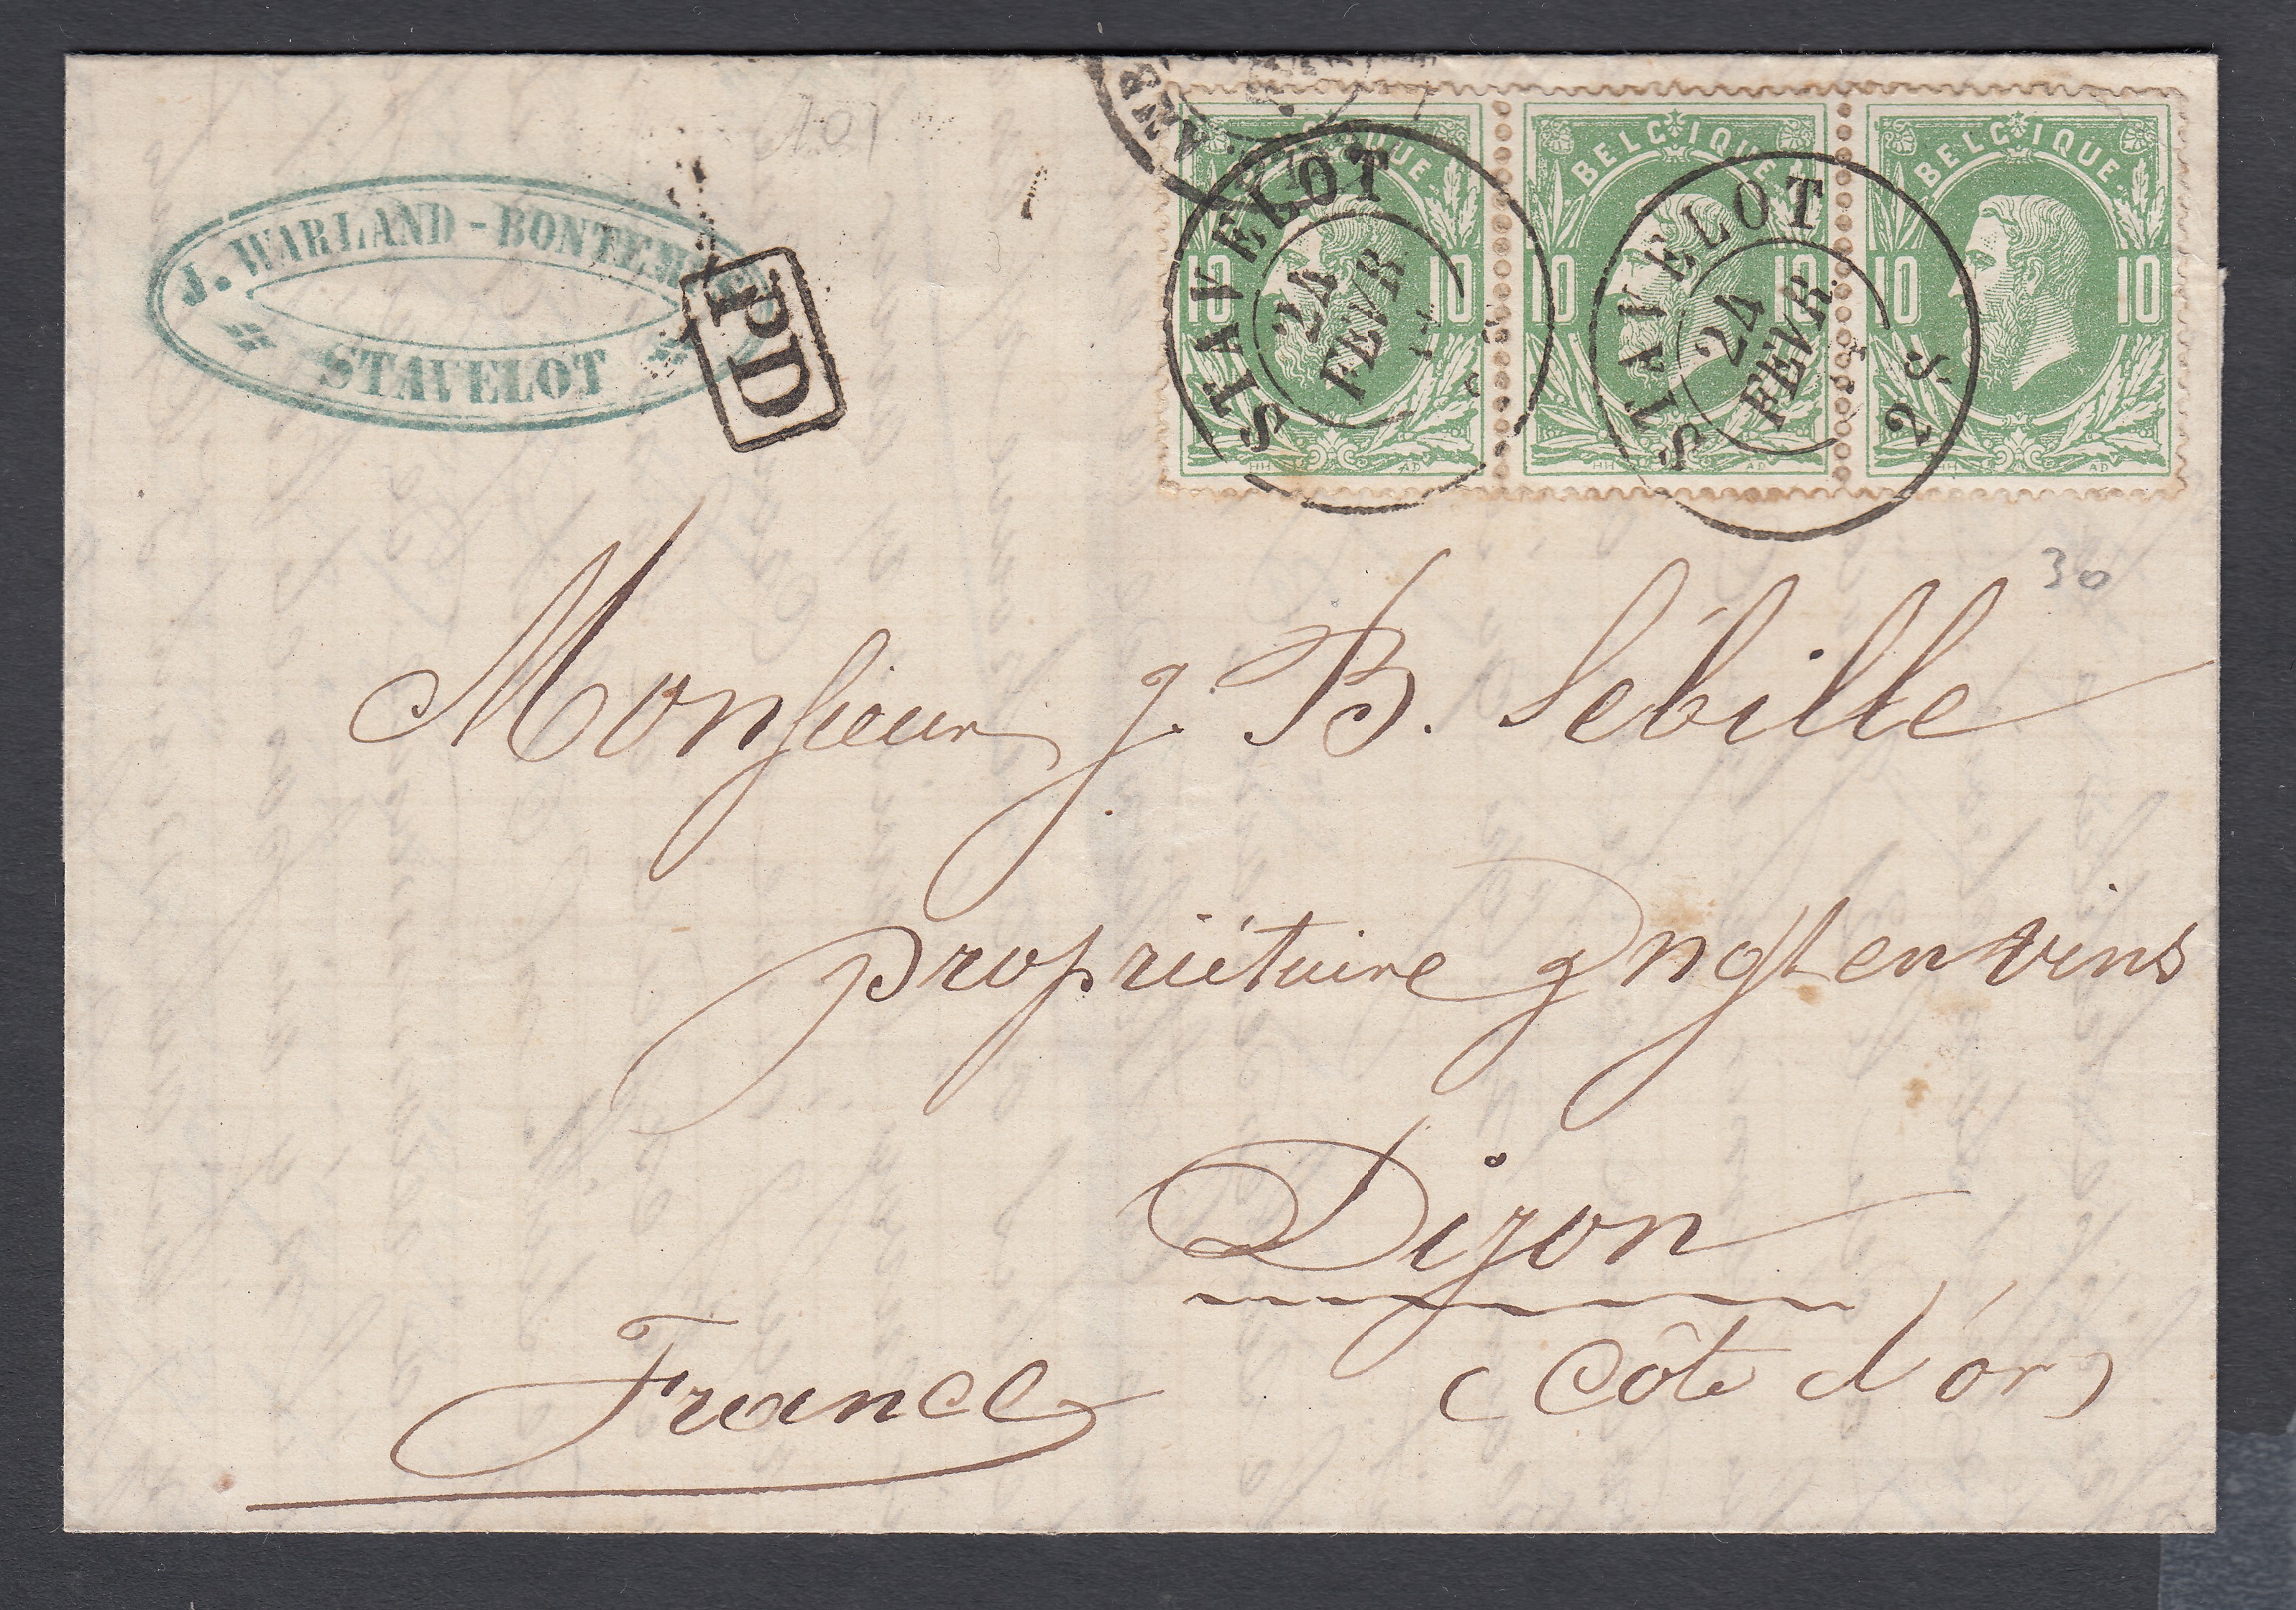 J. WARLAND-BONTEMPS
STAVELOT
PD
BELGIQUE
10 10
BELGIQUE
10 10
BELGIQUE
10 10
STAVELOT
24
FEVR
STAVELOT
24
FEVR
2 S
30
Monsieur J. B. Sébille
propriétaire & ngt en vins
Dijon
(Côte d'or)
France